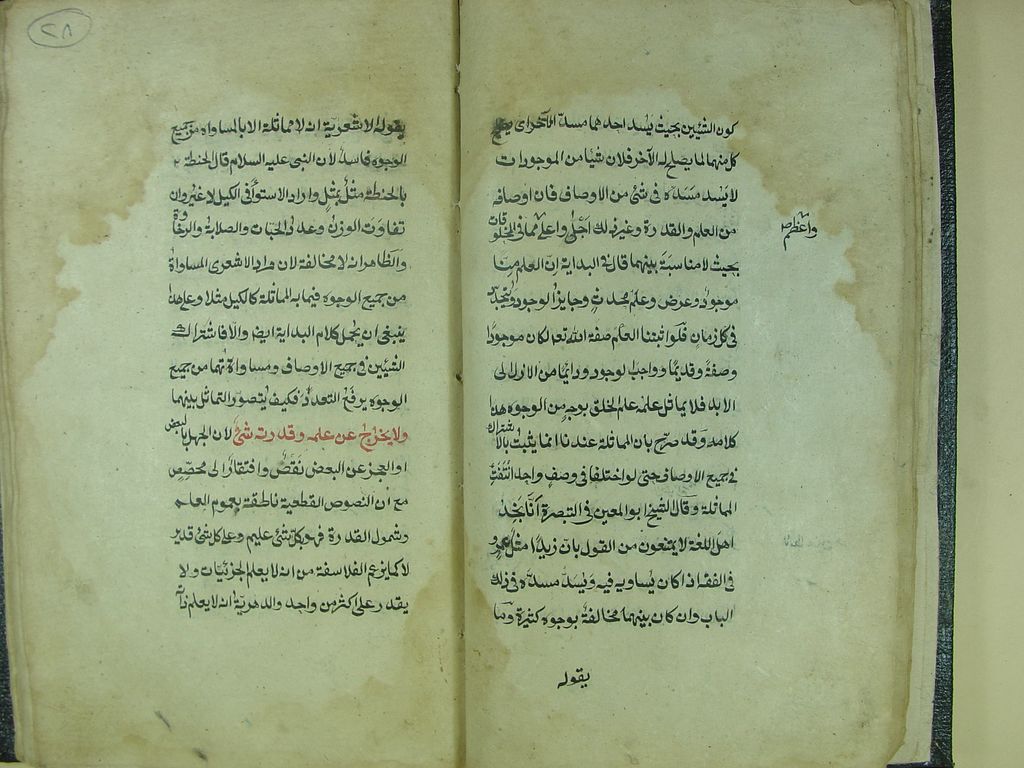 كون الشيئين بحيث يسد احدهما مسد الآخر اى يصلح
كل منهما لما يصلح له الآخر فلان شيأ من الموجودات
لا يسد مسده فى شئ من الاوصاف فان اوصافه
من العلم والقدرة وغير ذلك اجل واعلى مما فى المخلوقات
واعظم صح
بحيث لا مناسبة بينهما قال فى البداية ان العلم منا
موجود وعرض وعلم محدث وجايز الوجود ومتجدد
فى كل زمان فلو اثبتنا العلم صفة الله تعم لكان موجودا
وصفة وقديما وواجب لوجود ودائما من الازل الى
الابد فلا يماثل علمه علم الخلق بوجه من الوجوه هذا
كلامه وقد صرح بان المماثلة عندنا انما يثبت بالاشتراك
فى جميع الاوصاف حتى لو اختلفا فى وصف واحد انتفت
المماثلة وقال الشيخ ابو المعين فى التبصرة انا نجد
اهل اللغة لا يمتنعون من القول بان زيدا مثل عمرو
فى الفقه اذا كان يساويه فيه ويسد مسده فى ذلك
الباب وان كان بينهما مخالفة بوجوه كثيرة وما
يقوله
٢٨
يقوله الاشعرية انه لا مماثلة الا بالمساواة من جميع
الوجوه فاسد لان النبى عليه السلام قال الحنطة
بالحنطة مثل بمثل واراد الاستوآ فى الكيل لا غير وان
تفاوت الوزن وعدد الحبات والصلابة والرخاوة
والظاهر انه لا مخالفة لان مراد الاشعرى المساواة
من جميع الوجوه فيما به المماثلة كالكيل مثلا وعلى هذا
ينبغى ان يحمل كلام البداية ايضا والا فاشتراك
الشيئين فى جميع الاوصاف ومساواتهما من جميع
الوجوه يرفع التعدد فكيف يتصور التماثل بينهما
ولا يخرج عن علمه وقدرته شئ لان الجهل بالبعض
او العجز عن البعض نقص وافتقار الى مخصص
مع ان النصوص القطعية ناطقة بعموم العلم
وشمول القدرة فهو بكل شئ عليم وعلى كل شئ قدير
لا كما يزعم الفلاسفة من انه لا يعلم الجزئيات ولا
يقدر على اكثر من واحد والدهرية انه لا يعلم ذاته